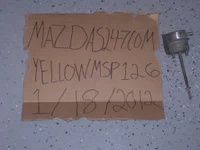 MAZDAS247COM
YELLOWMSP126
1/18/2012